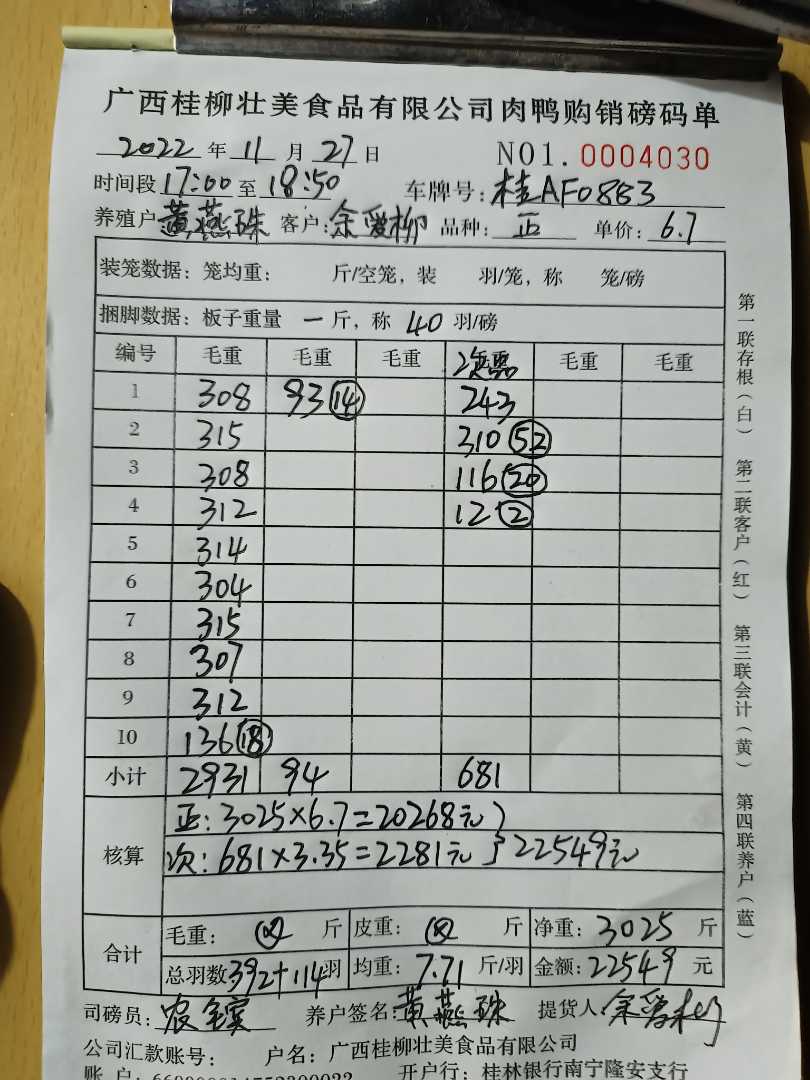 广西桂柳壮美食品有限公司肉鸭购销磅码单
2022年11月27日 NO1.0004030
时间段17:00至18:50 车牌号:桂AF0883
养殖户黄燕珠 客户:余爱柳 品种:正 单价:6.7
装笼数据:笼均重: 斤/空笼,装 羽/笼,称 笼/磅
捆脚数据:板子重量 一 斤,称 40 羽/磅
编号 毛重 毛重 毛重 毛重 毛重
1 308 93 14 243
2 315 310 52
3 308 116 20
4 312 12 2
5 314
6 304
7 315
8 307
9 312
10 136 18
小计 2931 94 681
核算
正:3025×6.7=20268元}
次:681×3.35=2281元}22549元
合计
毛重: 斤 皮重: 斤 净重:3025斤
总羽数392+114羽 均重:7.71斤/羽 金额:22549元
司磅员: 养户签名:黄燕珠 提货人:余爱柳
公司汇款账号: 户名:广西桂柳壮美食品有限公司
账户: 开户行:桂林银行南宁隆安支行
第一联存根(白) 第二联客户(红) 第三联会计(黄) 第四联养户(蓝)